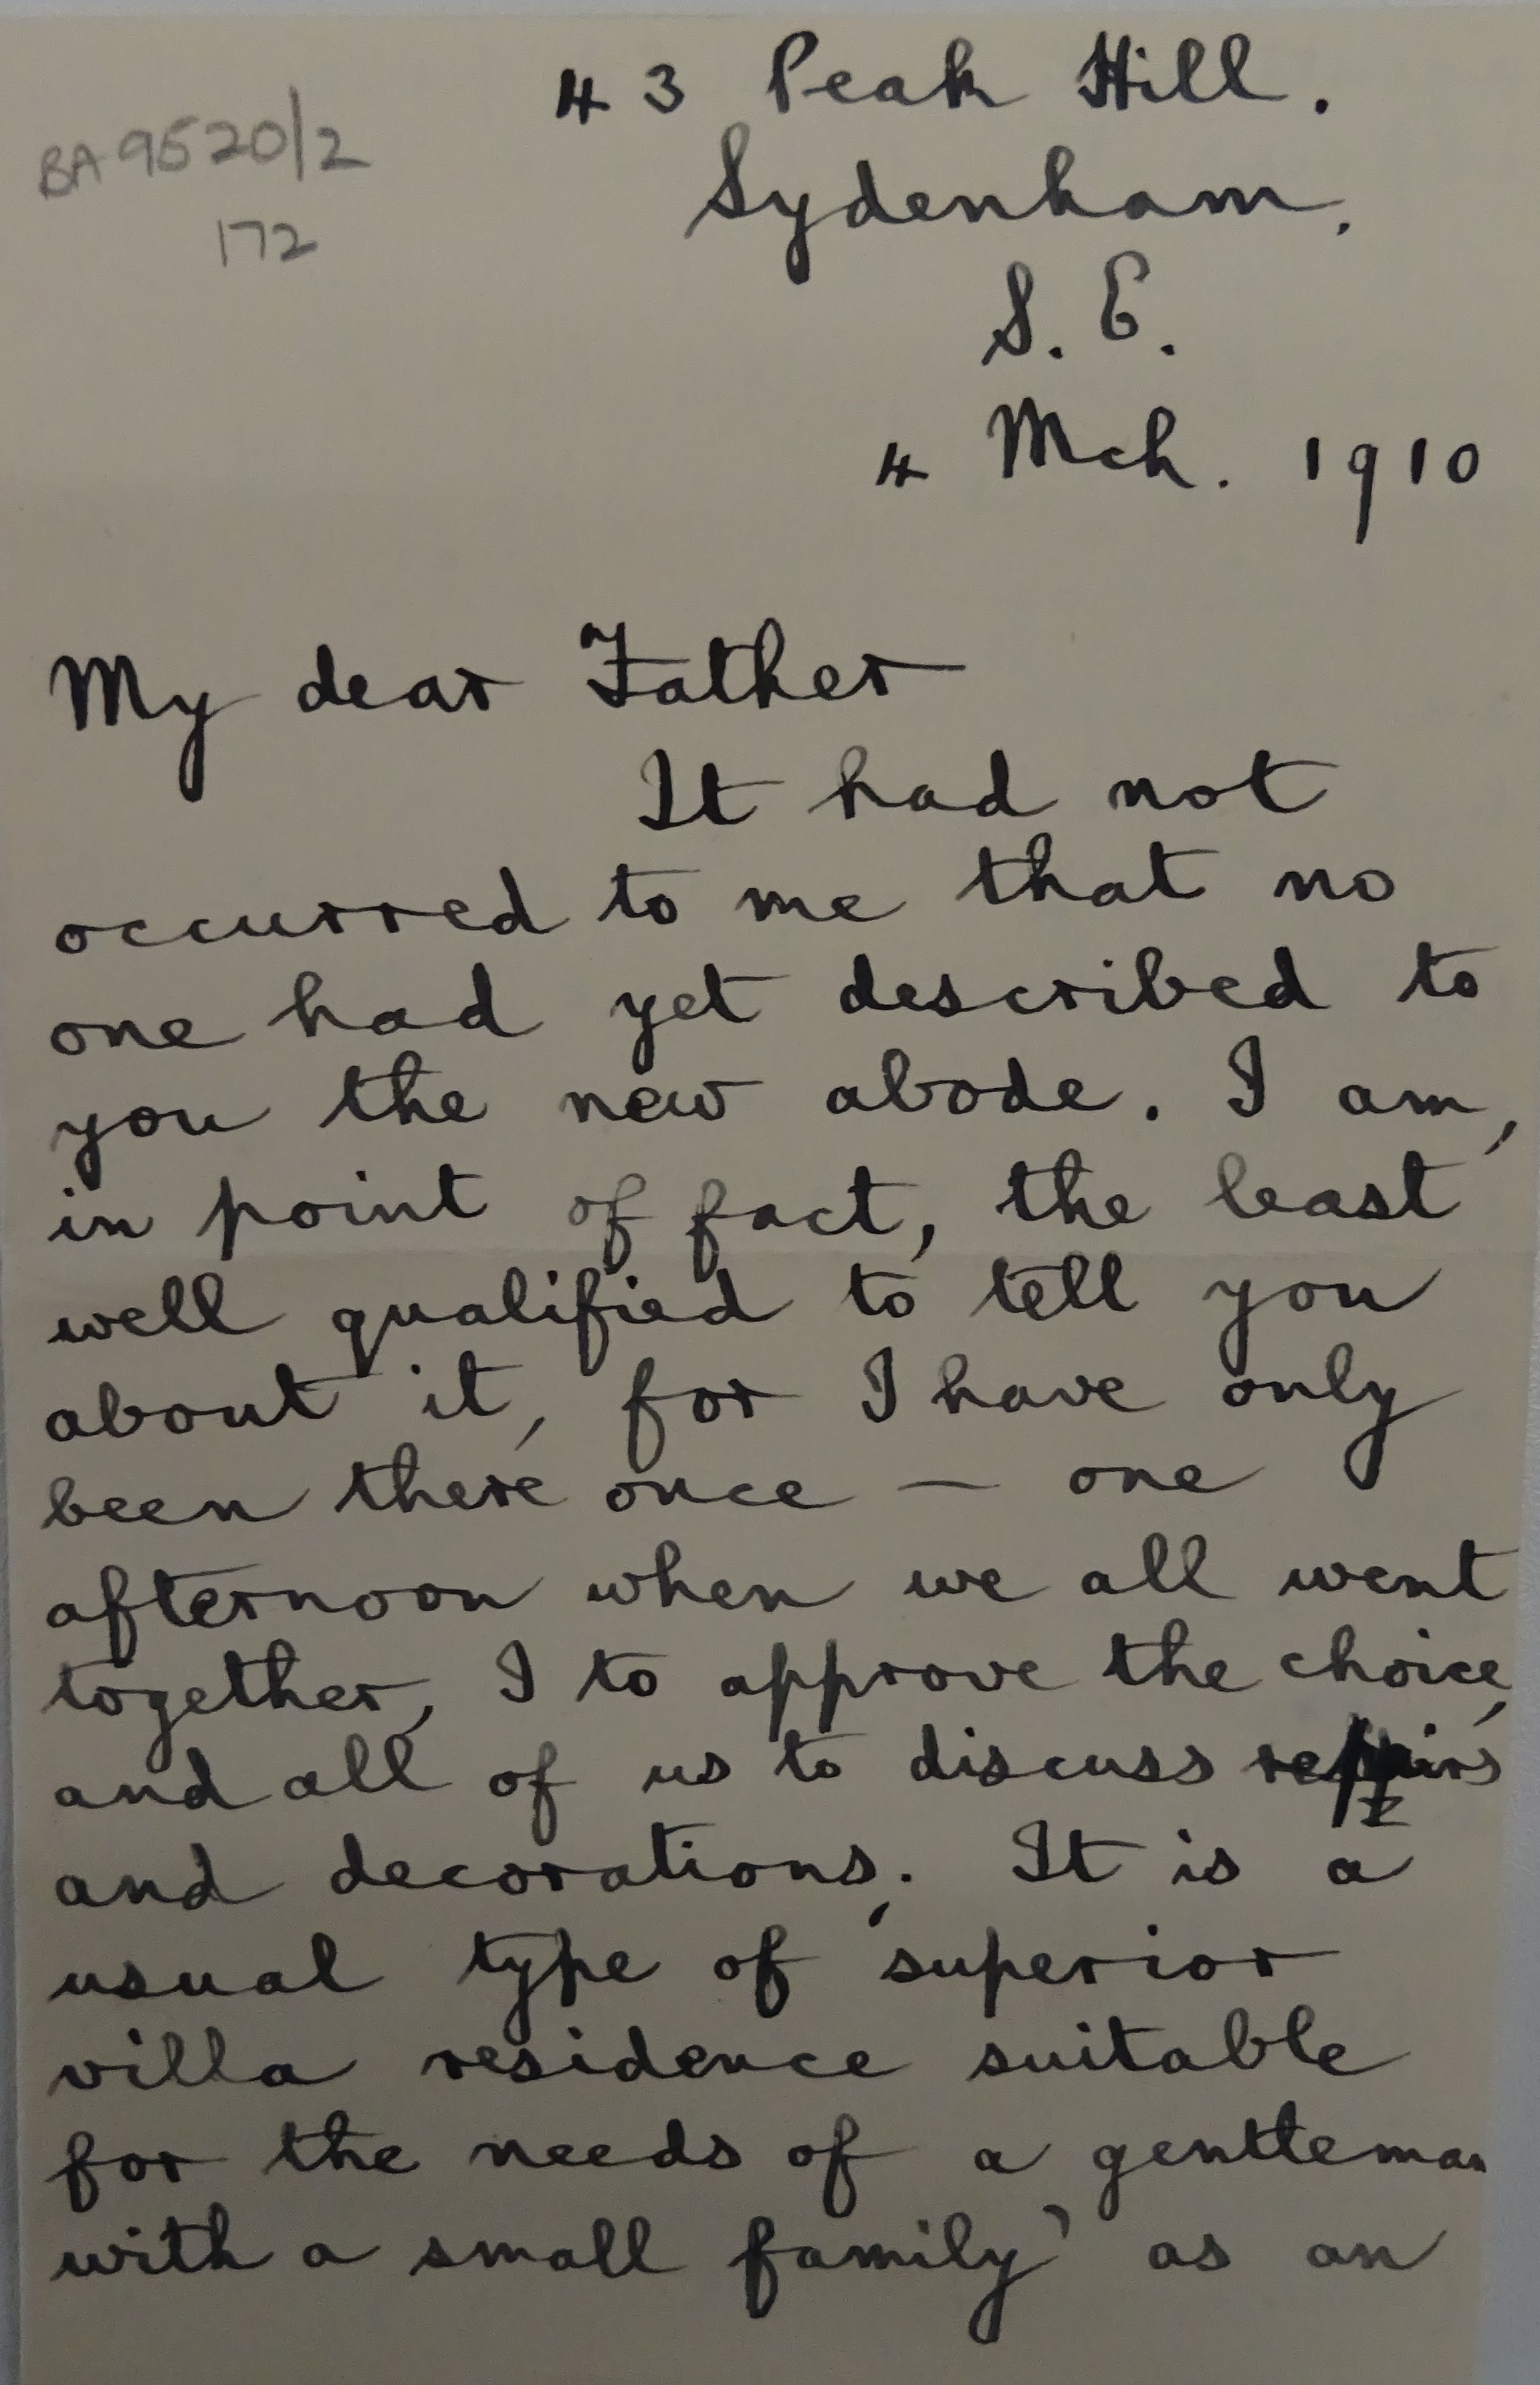 BA 9520/2
172
43 Peak Hill.
Sydenham.
S. E.
4 Mch. 1910
My dear Father
It had not
occurred to me that no
one had yet described to
you the new abode. I am,
in point of fact, the least
well qualified to tell you
about it, for I have only
been there once — one
afternoon when we all went
together, I to approve the choice,
and all of us to discuss repairs
and decorations. It is a
usual type of 'superior
villa residence suitable
for the needs of a gentleman
with a small family' as an